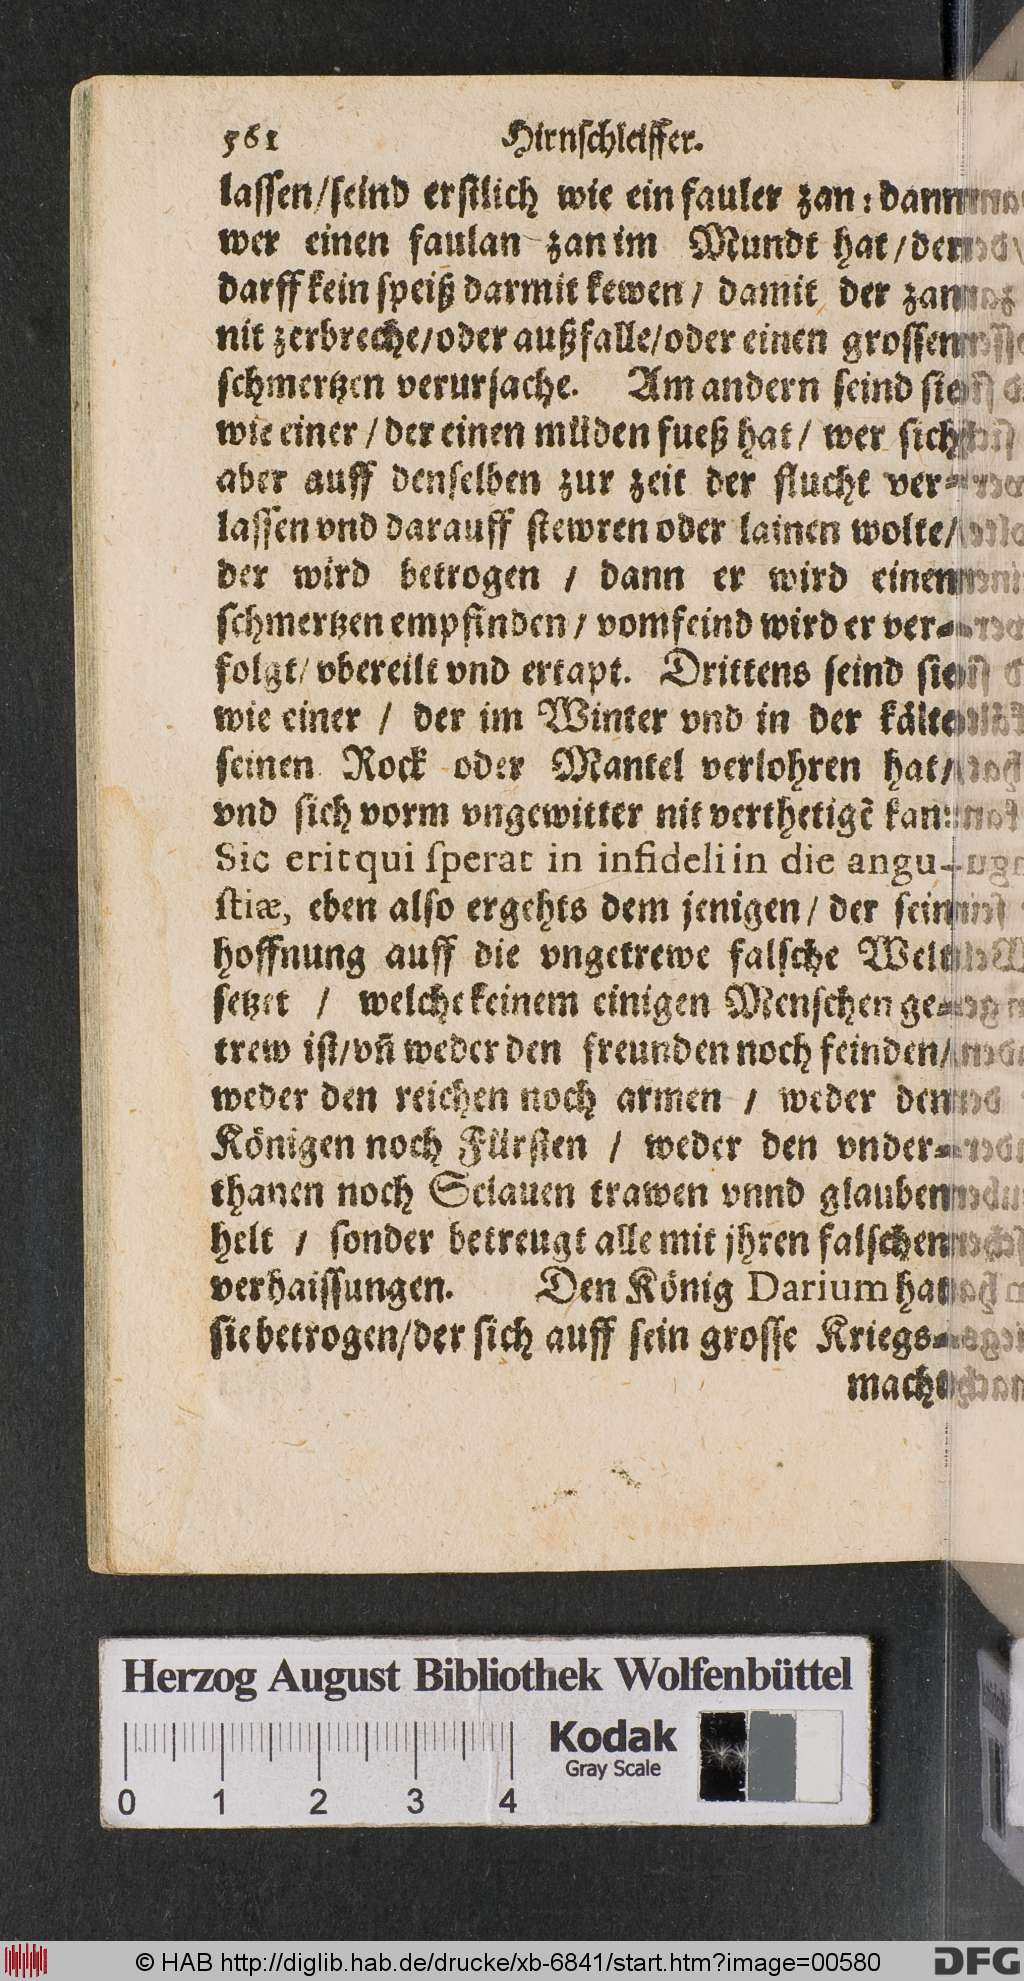 561 Hirnschleiffer.
lassen/seind erstlich wie ein fauler zan: dann
wer einen faulan zan im Mundt hat/der
darff kein speiß darmit kewen/ damit der zan
nit zerbreche/oder außfalle/oder einen grossen
schmertzen verursache. Am andern seind sie
wie einer/der einen müden fueß hat/ wer sich
aber auff denselben zur zeit der flucht ver-
lassen vnd darauff stewren oder lainen wolte/
der wird betrogen / dann er wird einen
schmertzen empfinden/ vom feind wird er ver-
folgt/ vbereilt vnd ertapt. Drittens seind sie
wie einer / der im Winter vnd in der kälte
seinen Rock oder Mantel verlohren hat/
vnd sich vorm vngewitter nit verthetigẽ kan:
Sic erit qui sperat in infideli in die angu-
stiæ, eben also ergehts dem jenigen/ der sein
hoffnung auff die vngetrewe falsche Welt
setzet / welche keinem einigen Menschen ge-
trew ist/vñ weder den freunden noch feinden/
weder den reichen noch armen / weder den
Königen noch Fürsten / weder den vnder-
thanen noch Sclauen trawen vnnd glauben
helt / sonder betreugt alle mit jhren falschen
verhaissungen. Den König Darium hat
sie betrogen/der sich auff sein grosse Kriegs-
macht
Herzog August Bibliothek Wolfenbüttel
0 1 2 3 4
Kodak
Gray Scale
© HAB http://diglib.hab.de/drucke/xb-6841/start.htm?image=00580
DFG